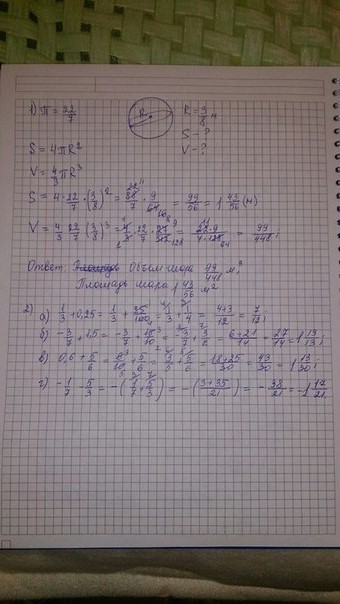 1) π = 22/7
R
R = 3/8 м
S - ?
V - ?
S = 4πR²
V = 4/3 πR³
S = 4 · 22/7 · (3/8)² = 88/7 · 9/64 = 99/56 = 1 43/56 (м)
V = 4/3 · 22/7 · (3/8)³ = 4/3 · 22/7 · = = 99/448;
Ответ: Объем шара 99/448 м³
Площадь шара 1 43/56 м²
2) а) 1/3 + 0,25 = 1/3 + 25/100 = 1/3 + 1/4 = 4+3/12 = 7/12;
б) -3/7 + 1,5 = -3/7 + 15/10 = -3/7 + 3/2 = -6+21/14 = 27/14 = 1 13/13;
в) 0,6 + 5/6 = 6/10 + 5/6 = 3/5 + 5/6 = 18+25/30 = 43/30 = 1 13/30;
г) -1/7 - 5/3 = -(1/7 + 5/3) = -(3+35/21) = -38/21 = -1 17/21